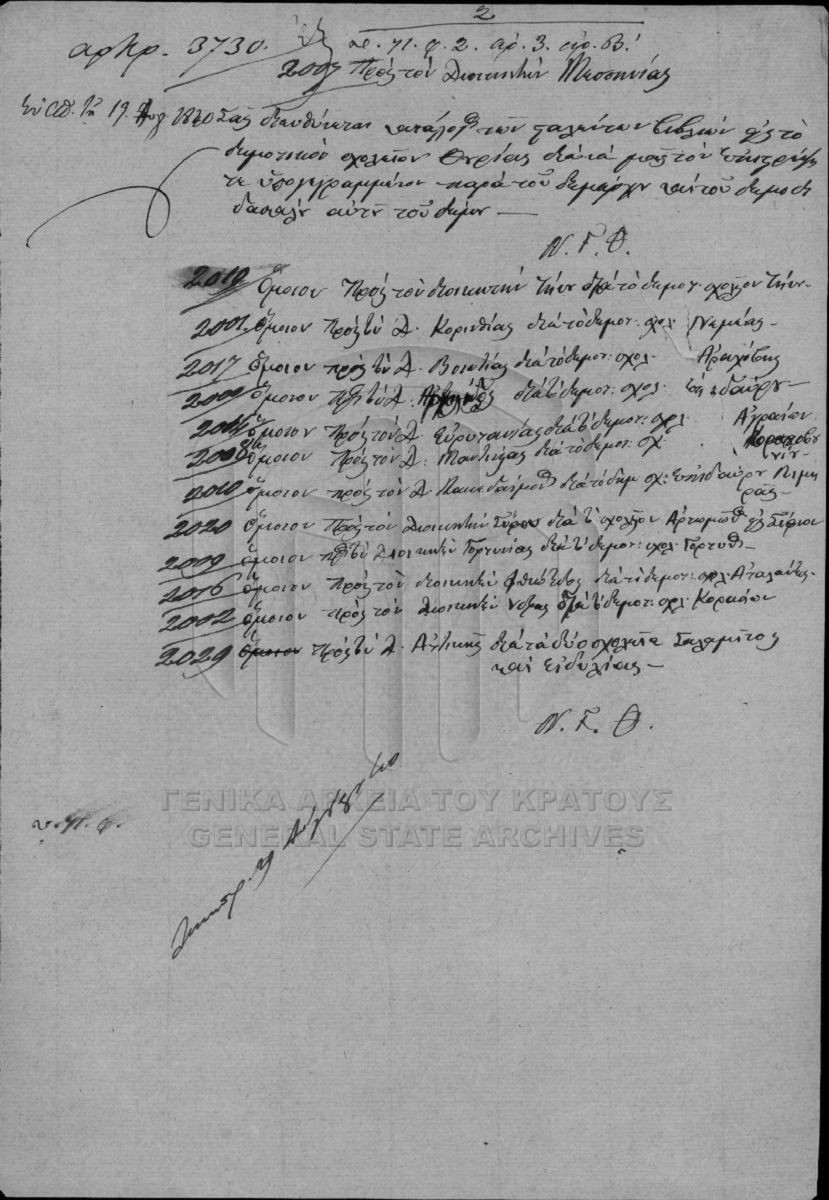 2
αρ. πρ. 3730. κ. 71. φ. 2. αρ. 3.
2007 Πρὸς τὸν Διοικητὴν Μεσσηνίας
Ἐν Ἀθ. τῇ 19 Αυγ 1840 Σᾶς διευθύνεται κατάλογ τῶν σταλέντων βιβλίων εἰς τὸ
δημοτικὸν σχολεῖον Θυρίας διὰ νὰ μᾶς τὸν
ὑπογεγραμμένον παρὰ τοῦ δημάρχου καὶ τοῦ δημοδι
δασκάλου αὐτῆ τοῦ δήμου —
Ν. Γ. Θ.
2010 Ὅμοιον Πρὸς τὸν διοικητὴν Τήνου διὰ τὸ δημοτ. σχολεῖον Τήνου -
2001 Ὅμοιον Πρὸς τὸν Δ. Κορινθίας διὰ τὸ δημοτ: σχολ. Νεμέας -
2017 Ὅμοιον πρὸς τὸν Δ. Βοιωτίας διὰ τὸ δημοτ: σχολ. Ἀραχόβης
Ὅμοιον Πρὸς τὸν Δ. διὰ τὸ δημοτ: σχολ. Ἐπιδαύρου —
Ὅμοιον Πρὸς τὸν Δ. Εὐρυτανίας διὰ τὸ δημοτ: σχολ. Ἀγραίων
2008 Ὅμοιον Πρὸς τὸν Δ. Μαντινείας διὰ τὸ δημοτ: σχ.
2010 Ὅμοιον πρὸς τὸν Δ. Λακεδαίμον διὰ τὸ δημ σχ: Ἐπιδαύρου Λιμη
ρᾶς -
2020 Ὅμοιον Πρὸς τὸν Διοικητὴν Σύρου διὰ τὸ σχολεῖον εἰς Σίφνον
2009 Ὅμοιον πρὸς τὸν Διοικητὴν Γορτυνίας διὰ τὸ δημοτ: σχολ. Γόρτυν -
2016 Ὅμοιον Πρὸς τὸν διοικητὴν Φθιώτιδος διὰ τὸ δημοτ: σχολ. Ἀταλάντης -
2002 Ὅμοιον Πρὸς τὸν Διοικητὴν Νάξου διὰ τὸ δημοτ: σχολ.
2029 Ὅμοιον Πρὸς τὸν Δ. Ἀττικῆς διὰ τὰ δύο σχολεῖα Σαλαμῖνος
καὶ Εἰδυλίας —
Ν. Γ. Θ.
ΓΕΝΙΚΑ ΑΡΧΕΙΑ ΤΟΥ ΚΡΑΤΟΥΣ
GENERAL STATE ARCHIVES
κ. 71. φ.